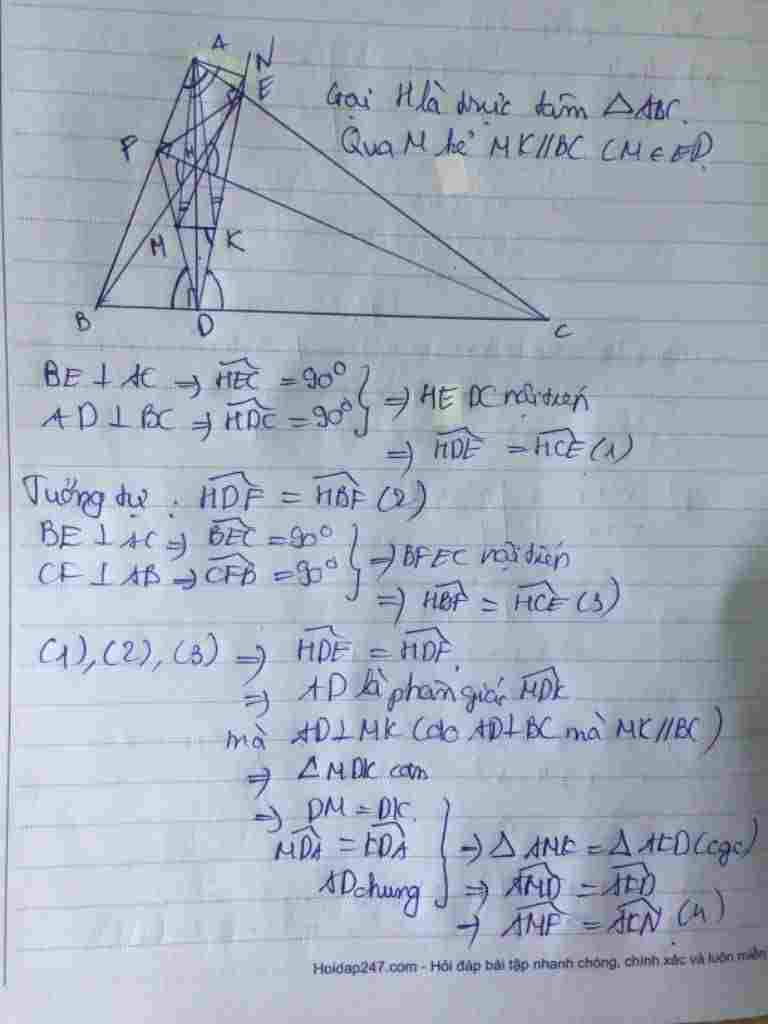 A
N
E
Gọi H là trực tâm △ABC.
Qua M kẻ MK//BC (M ∈ ED)
F
H
M
K
B
D
C
BE ⊥ AC ⇒ HEC = 90°
AD ⊥ BC ⇒ HDC = 90°
⇒ HEDC nội tiếp
⇒ HDE = HCE (1)
Tương tự: HDF = HBF (2)
BE ⊥ AC ⇒ BEC = 90°
CF ⊥ AB ⇒ CFB = 90°
⇒ BFEC nội tiếp
⇒ HBF = HCE (3)
(1), (2), (3) ⇒ HDE = HDF
⇒ AD là phân giác MDK
mà AD ⊥ MK (do AD ⊥ BC mà MK//BC)
⇒ △MDK cân
⇒ DM = DK
MDA = KDA
AD chung
⇒ △AMK = △AKD (cgc)
⇒ AMD = AKD
⇒ AMF = AKN (4)
Hoidap247.com - Hỏi đáp bài tập nhanh chóng, chính xác và luôn miễn